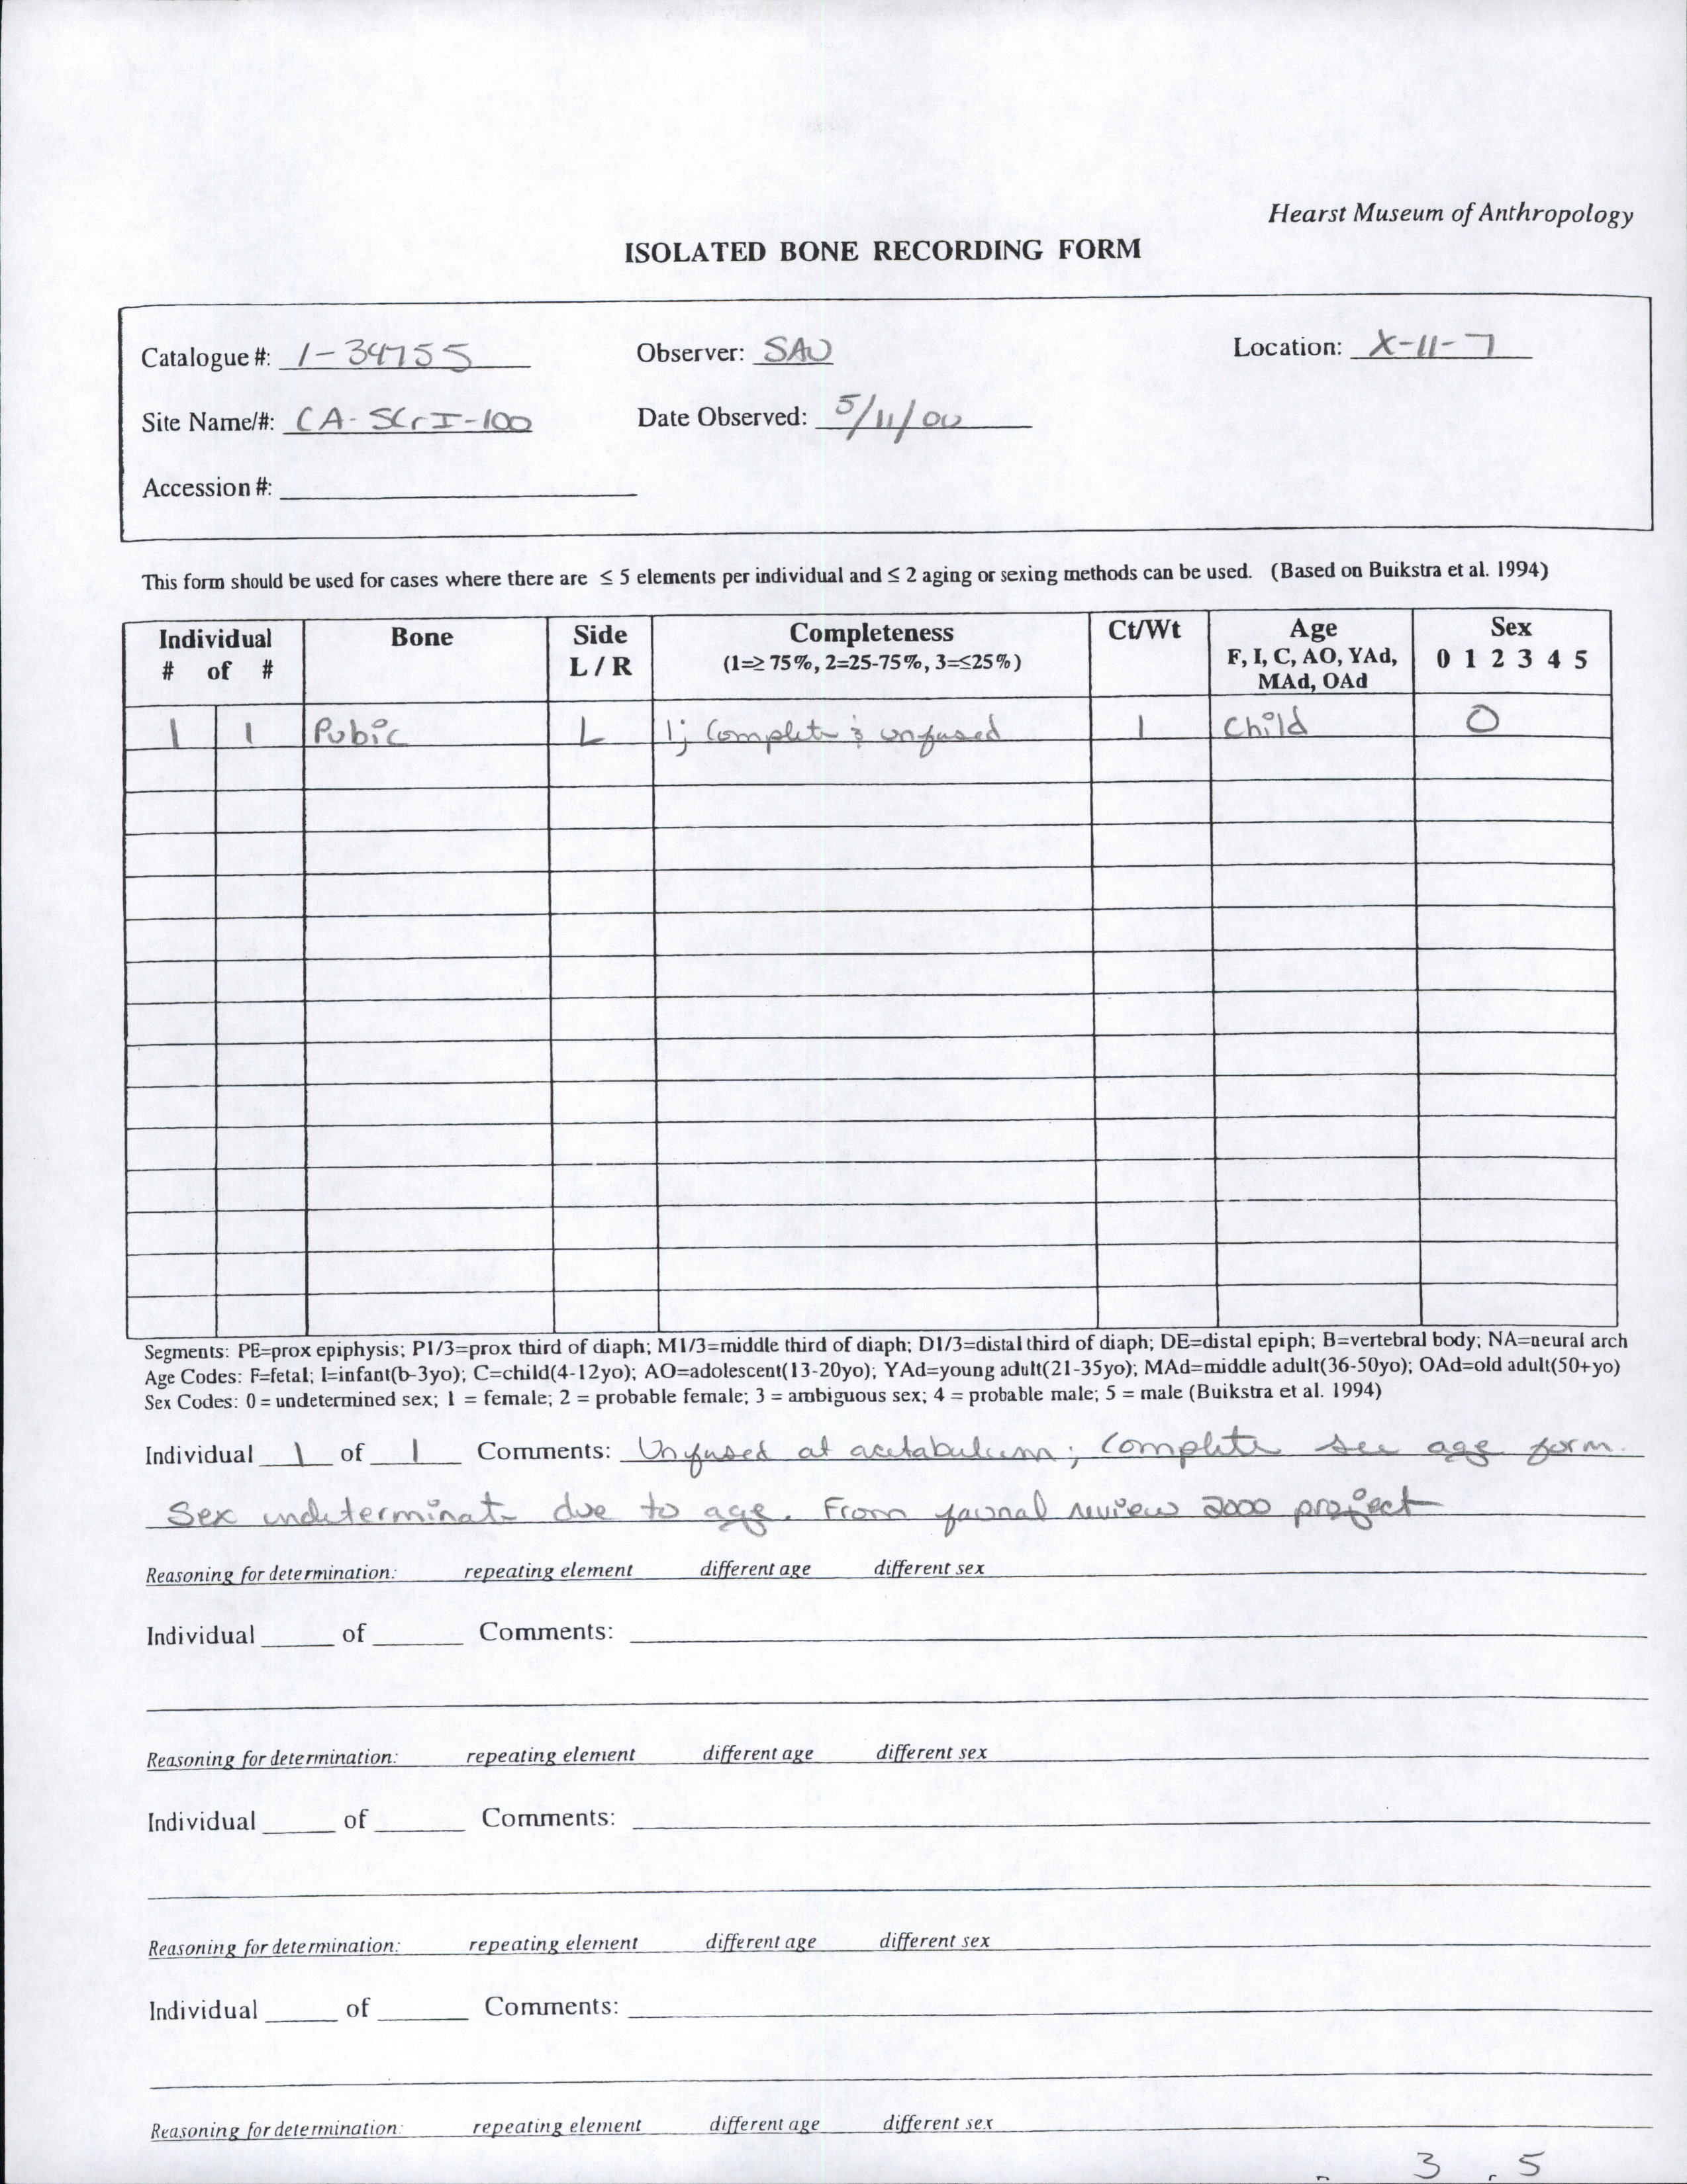 Hearst Museum of Anthropology
ISOLATED BONE RECORDING FORM
Catalogue #: 1-34755 Observer: SAU Location: X-11-7
Site Name/#: CA-SCrI-100 Date Observed: 5/11/00
Accession #:
This form should be used for cases where there are ≤ 5 elements per individual and ≤ 2 aging or sexing methods can be used. (Based on Buikstra et al. 1994)
Individual Bone Side Completeness Ct/Wt Age Sex
# of # L / R (1=≥ 75%, 2=25-75%, 3=≤25%) F, I, C, AO, YAd, 0 1 2 3 4 5
MAd, OAd
1 1 Pubic L 1; Complete & unfused 1 Child 0
Segments: PE=prox epiphysis; P1/3=prox third of diaph; M1/3=middle third of diaph; D1/3=distal third of diaph; DE=distal epiph; B=vertebral body; NA=neural arch
Age Codes: F=fetal; I=infant(b-3yo); C=child(4-12yo); AO=adolescent(13-20yo); YAd=young adult(21-35yo); MAd=middle adult(36-50yo); OAd=old adult(50+yo)
Sex Codes: 0 = undetermined sex; 1 = female; 2 = probable female; 3 = ambiguous sex; 4 = probable male; 5 = male (Buikstra et al. 1994)
Individual 1 of 1 Comments: Unfused at acetabulum; Complete see age form.
Sex indeterminate due to age. From faunal review 2000 project
Reasoning for determination: repeating element different age different sex
Individual of Comments:
Reasoning for determination: repeating element different age different sex
Individual of Comments:
Reasoning for determination: repeating element different age different sex
Individual of Comments:
Reasoning for determination: repeating element different age different sex
3 5